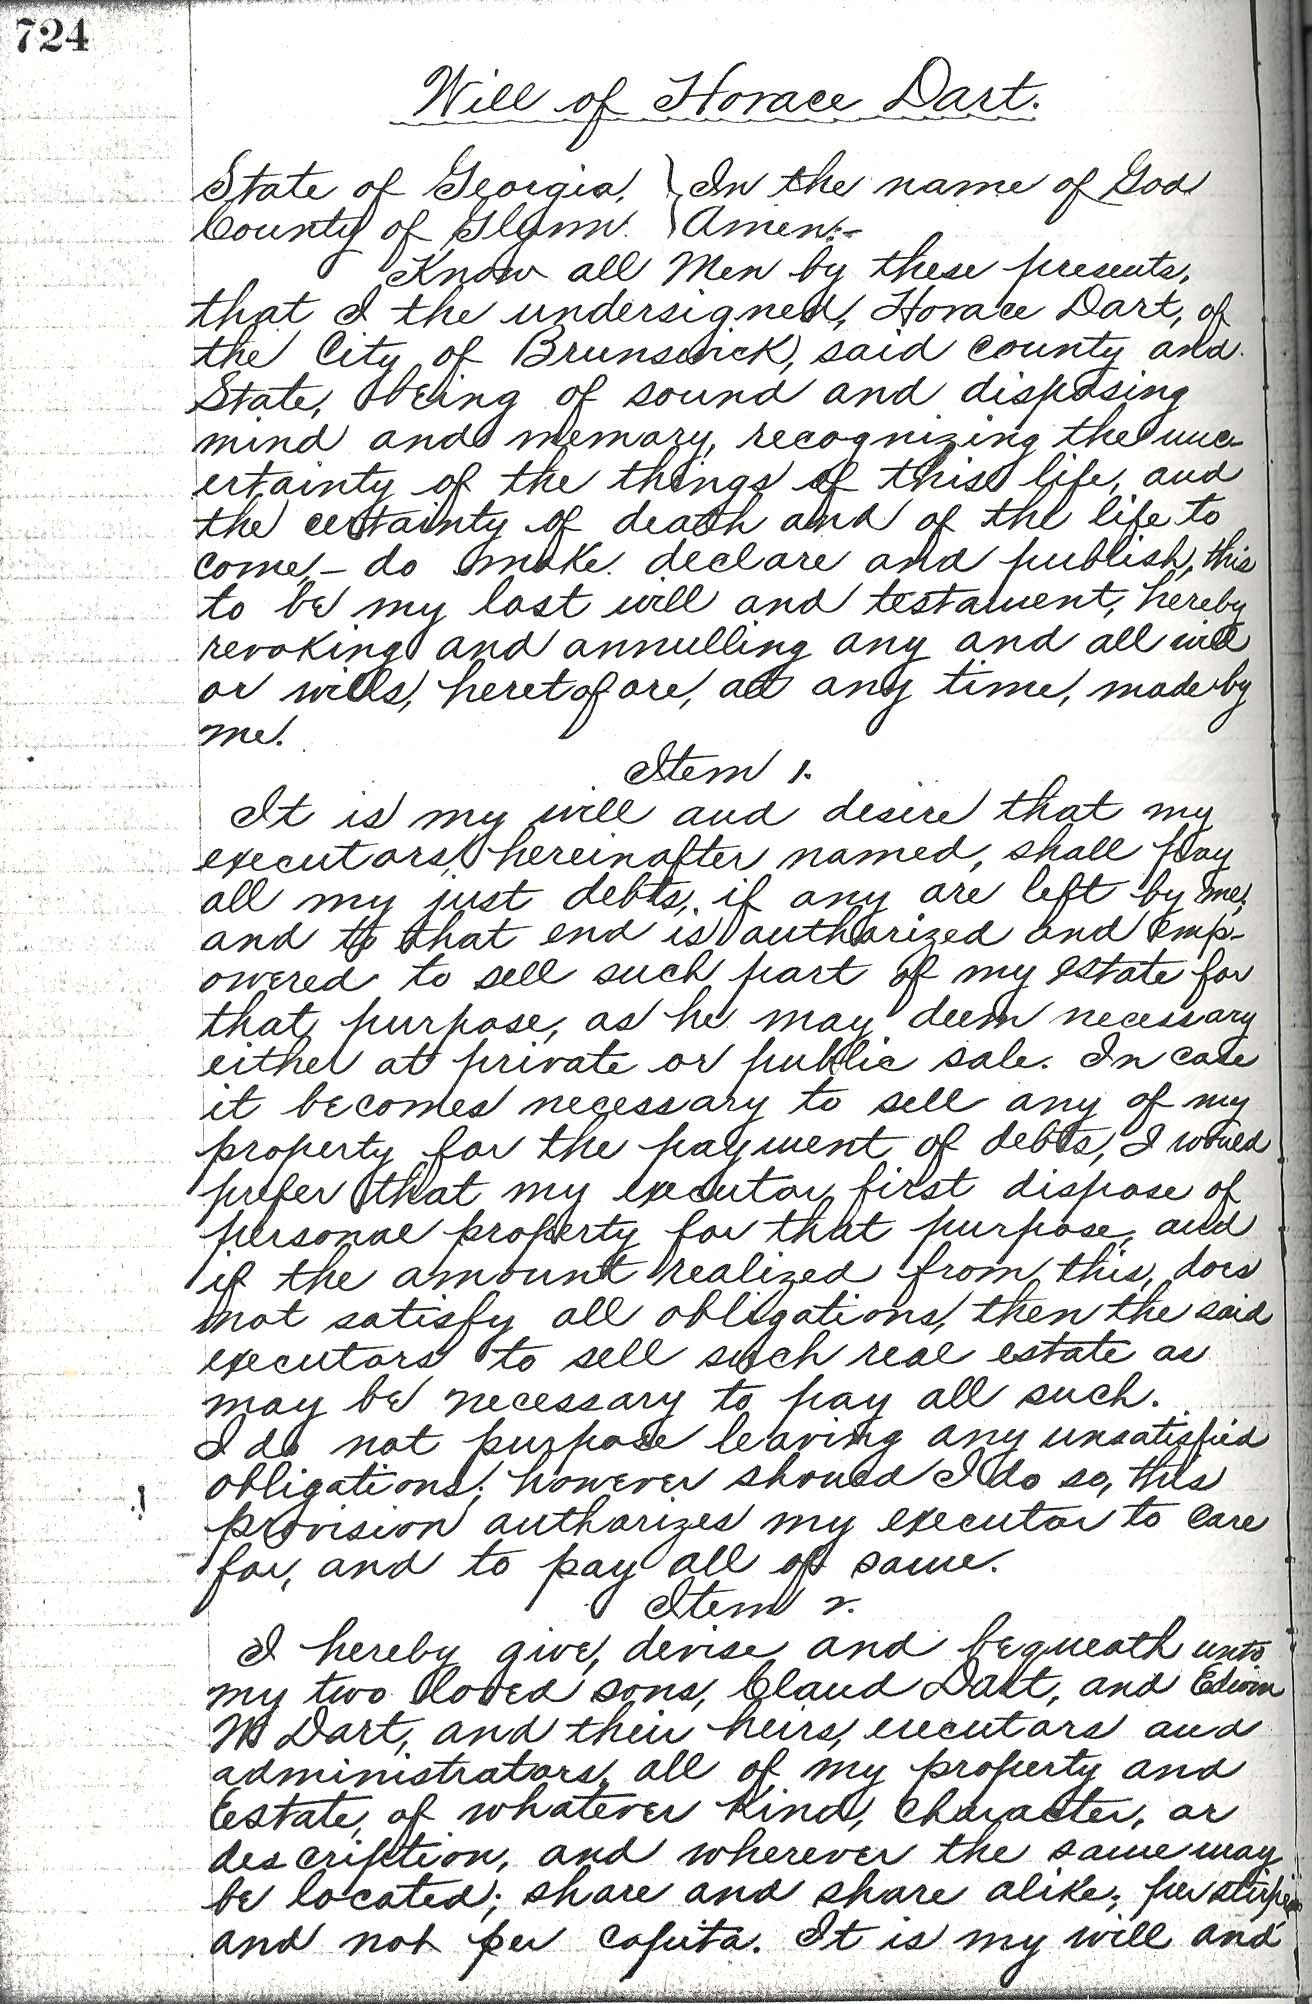 724
Will of Horace Dart.
State of Georgia, } In the name of God
County of Glynn. } Amen:-
Know all Men by these presents,
that I the undersigned, Horace Dart, of
the City of Brunswick, said county and
State, being of sound and disposing
mind and memory, recognizing the unc-
ertainty of the things of this life, and
the certainty of death and of the life to
come,- do make declare and publish, this
to be my last will and testament, hereby
revoking and annulling any and all will
or wills, heretofore, at any time, made by
me.
Item 1.
It is my will and desire that my
executors, hereinafter named, shall pay
all my just debts, if any are left by me,
and to that end is authorized and emp-
owered to sell such part of my estate for
that purpose, as he may deem necessary
either at private or public sale. In case
it becomes necessary to sell any of my
property for the payment of debts, I would
prefer that my executor first dispose of
personal property for that purpose, and
if the amount realized from this, does
not satisfy all obligations, then the said
executors to sell such real estate as
may be necessary to pay all such.
I do not purpose leaving any unsatisfied
obligations; however should I do so, this
provision authorizes my executor to care
for, and to pay all of same.
Item 2.
I hereby give, devise and bequeath unto
my two loved sons, Claud Dart, and Edwin
W Dart, and their heirs, executors and
administrators, all of my property and
Estate, of whatever kind, character, or
description, and wherever the same may
be located; share and share alike; per stirpes
and not per capita. It is my will and